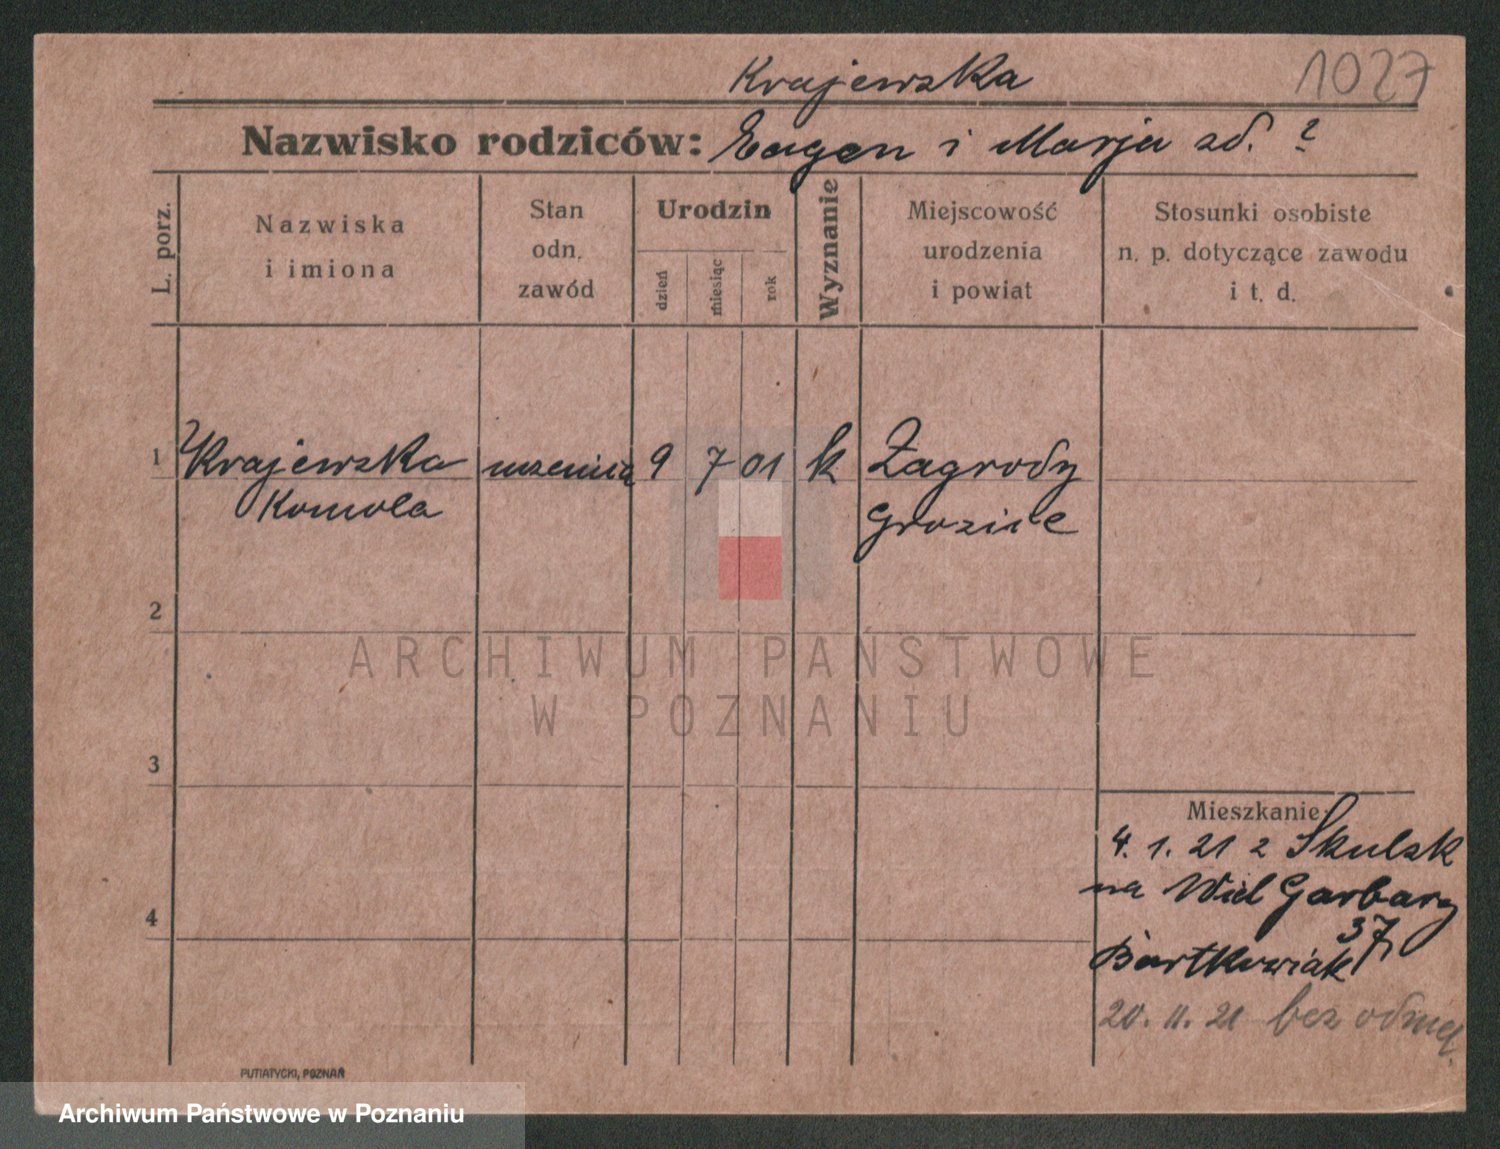 Krajewska
1027
Nazwisko rodziców: Eugen i Marja zd. ?
L. porz.
Nazwiska
i imiona
Stan
odn.
zawód
Urodzin
dzień
miesiąc
rok
Wyznanie
Miejscowość
urodzenia
i powiat
Stosunki osobiste
n. p. dotyczące zawodu
i t. d.
1 Krajewska uczenica 9 7 01 k Zagrody
2
ARCHIWUM PAŃSTWOWE
W POZNANIU
3
Mieszkanie:
4. 1. 21 z Skulsk
na Wiel Garbary
4
37
Bartkowiak
20. 11. 21 bez odmel.
PUTIATYCKI, POZNAŃ
Archiwum Państwowe w Poznaniu